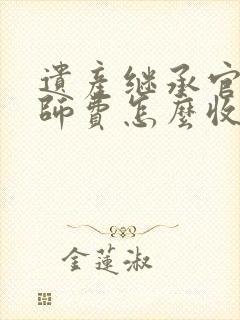 遺產继承官
師費怎麼收
金蓮淑